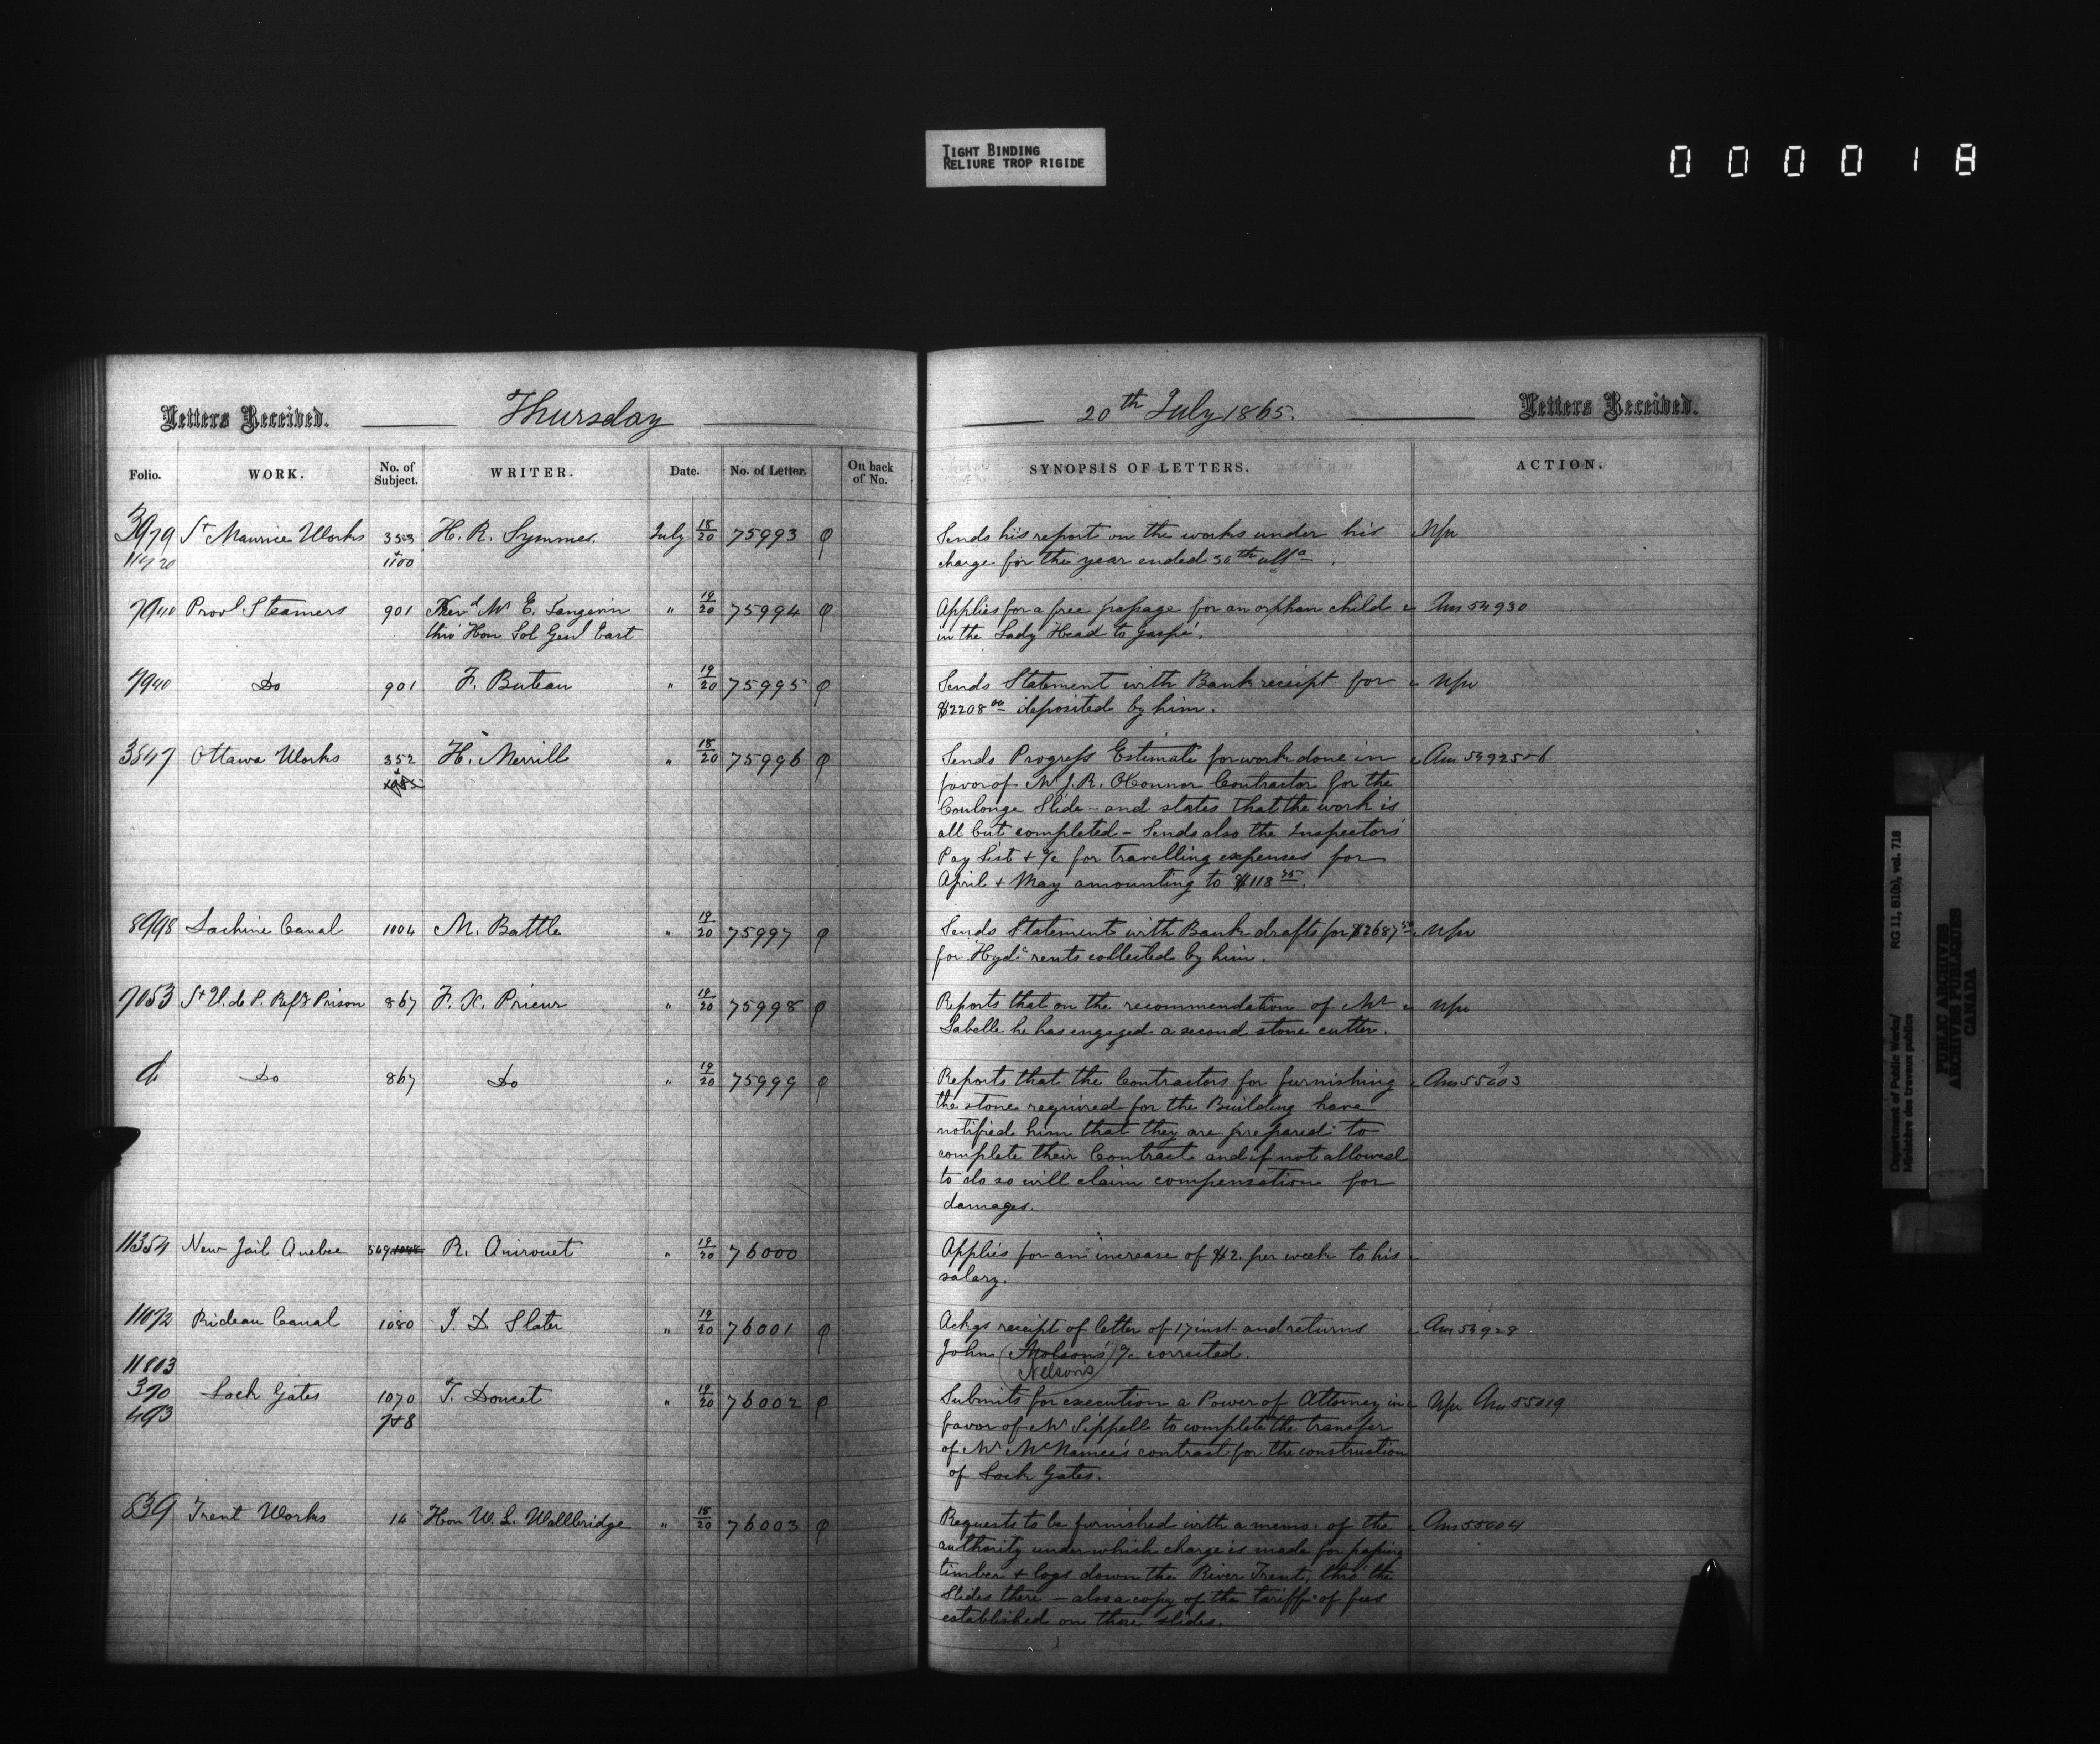 TIGHT BINDING
RELIURE TROP RIGIDE
000018
Letters Received. Thursday 20th July 1865. Letters Received.
Folio. WORK. No. of Subject. WRITER. Date. No. of Letter. On back of No. SYNOPSIS OF LETTERS. ACTION.
3979 St Maurice Works 353 H. R. Symmes. July 18/20 75993 φ Sends his report on the works under his
11720 + 1100 charge for the year ended 30th ulto.
7940 Provl Steamers 901 Revd Mr E. Langevin " 19/20 75994 φ Applies for a free passage for an orphan child Ans 54930
thro' Hon Sol Genl East in the Lady Head to Gaspé.
7940 Do 901 F. Buteau " 19/20 75995 φ Sends Statement with Bank receipt for
$2208 00 deposited by him.
3847 Ottawa Works 352 H. Merrill " 18/20 75996 φ Sends Progress Estimate for work done in Ans 54925+6
favor of Mr J. R. O'Connor Contractor for the
Coulonge Slide - and states that the work is
all but completed - Sends also the Inspectors'
Pay List + a/c for travelling expenses for
April + May amounting to $118 35.
8998 Lachine Canal 1004 M. Battle " 19/20 75997 φ Sends Statement with Bank drafts for $2687 50
for Hydc rents collected by him.
7053 St V. de P. Refy Prison 867 F. X. Prieur " 19/20 75998 φ Reports that on the recommendation of Mr
Labelle he has engaged a second stone cutter.
d Do 867 Do " 19/20 75999 φ Reports that the Contractors for furnishing Ans 55003
the stone required for the Building have
notified him that they are prepared to
complete their Contract and if not allowed
to do so will claim compensation for
damages.
11354 New Jail Quebec 549 R. Quirouet " 19/20 76000 Applies for an increase of $2. per week to his
salary.
11072 Rideau Canal 1080 J. D Slater " 19/20 76001 φ Ackgs receipt of letter of 17 inst. and returns Ans 54928
John (Molson's) a/c corrected.
Nelson's
11803
370 Lock Gates 1070 T. Doucet " 19/20 76002 φ Submits for execution a Power of Attorney in Ans 55019
493 7+8 favor of Mr Sippell to complete the transfer
of Mr McNamee's contract for the construction
of Lock Gates.
839 Trent Works 14 Hon W. L. Wallbridge " 18/20 76003 φ Requests to be furnished with a memo. of the Ans 55004
authority under which charge is made for passing
timber + logs down the River Trent, thro' the
Slides there - also a copy of the tariff of fees
established on those slides.
Department of Public Works/ RG 11, B1(b), vol. 718
Ministère des travaux publics
PUBLIC ARCHIVES
ARCHIVES PUBLIQUES
CANADA